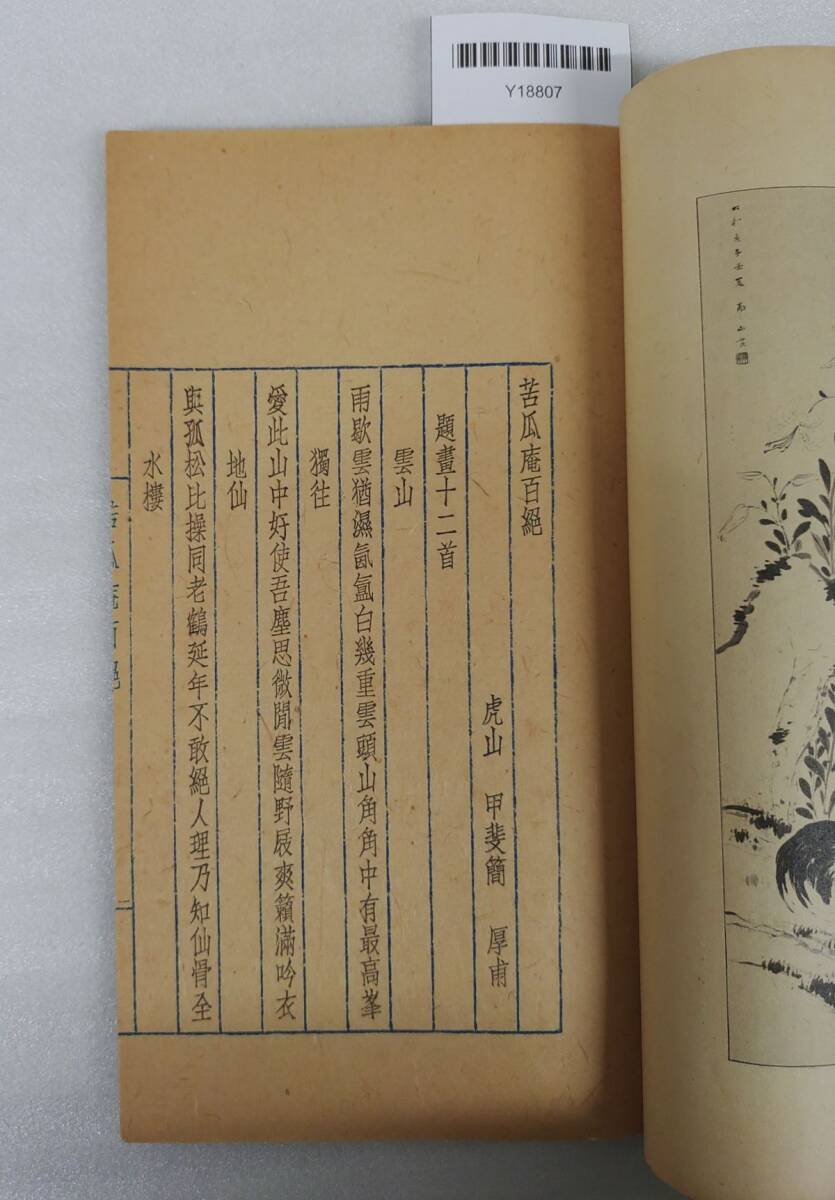 Y18807
苦瓜庵百絕
虎山 甲斐簡 厚甫
題畫十二首
雲山
雨歇雲猶濕氤氳白幾重雲頭山角角中有最高峯
獨往
愛此山中好使吾塵思微閒雲隨野屐爽籟滿吟衣
地仙
與孤松比操同老鶴延年不敢絕人理乃知仙骨全
水樓
苦瓜庵百絕
一